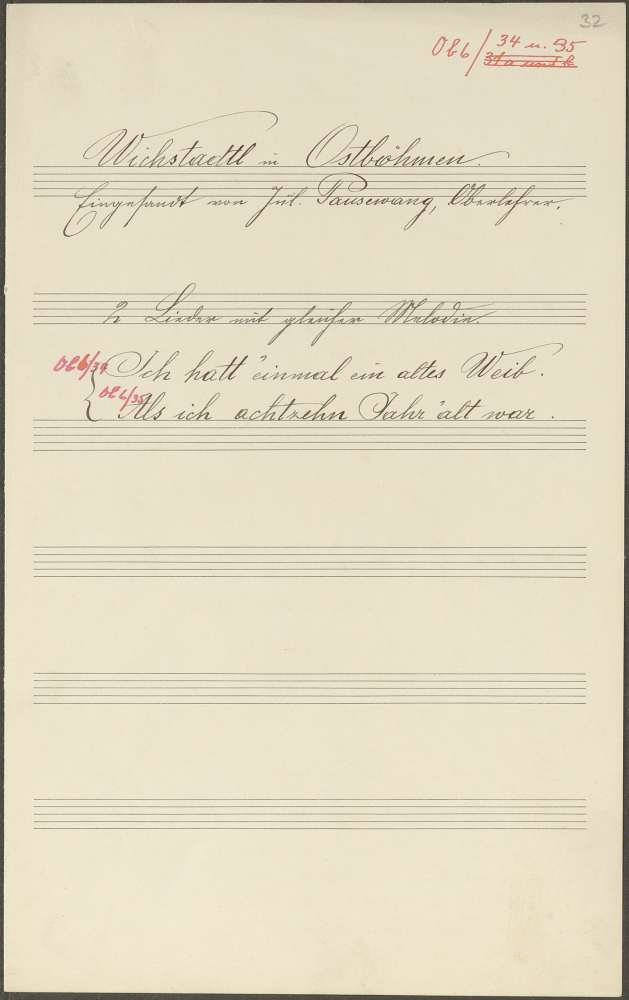 32
Ob6/34 u. 35
31a und b
Wichstadtl in Ostböhmen.
Eingesandt von Jul. Pausewang, Oberlehrer.
2 Lieder mit gleicher Melodie.
Ob6/34 Ich hatt' einmal ein altes Weib.
Ob6/35 Als ich achtzehn Jahr' alt war.